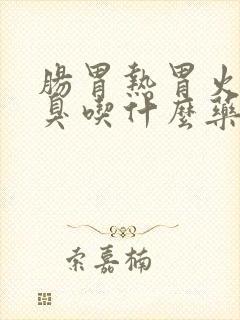 腸胃熱胃火
臭喫什麼藥
索嘉楠